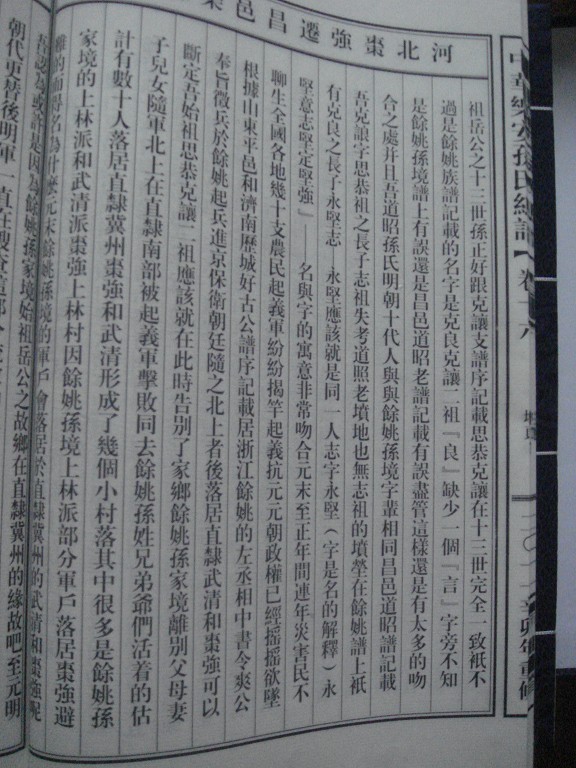 中華樂安孫氏總譜【卷十六
二〇一一辛卯年重修
河北棗強遷昌邑
祖岳公之十三世孫正好跟克讓支譜序記載思恭克讓在十三世完全一致祇不
過是餘姚族譜記載的名字是克良克讓二祖『良』缺少一個『言』字旁不知
是餘姚孫境譜上有誤還是昌邑道昭老譜記載有誤儘管這樣還是有太多的吻
合之處并且吾道昭孫氏明朝十代人與與餘姚孫境字輩相同昌邑道昭譜記載
吾克讓字思恭祖之長子志祖失考道照老墳地也無志祖的墳塋在餘姚譜上祇
有克良之長子永堅志—永堅應該就是同一人志字永堅（字是名的解釋）永
堅意志堅定堅強』——名與字的寓意非常吻合元末至正年間連年災害民不
聊生全國各地幾十支農民起義軍紛紛揭竿起義抗元元朝政權已經搖搖欲墜
根據山東平邑和濟南歷城好古公譜序記載居浙江餘姚的左丞相中書令爽公
奉旨徵兵於餘姚起兵進京保衛朝廷隨之北上者後落居直隸武清和棗強可以
斷定吾始祖思恭克讓二祖應該就在此時告別了家鄉餘姚孫家境離別父母妻
子兒女隨軍北上在直隸南部被起義軍擊敗同去餘姚孫姓兄弟爺們活着的估
計有數十人落居直隸冀州棗強和武清形成了幾個小村落其中很多是餘姚孫
家境的上林派和武清派棗強上林村因餘姚孫境上林派部分軍戶落居棗強避
難的而得名為什麼元末餘姚孫家境的軍戶會落居於直隸冀州的武清和棗強呢
吾認為或許是因為餘姚孫家境始祖岳公之故鄉在直隸冀州的緣故吧至元明
朝代更替後明軍一直在搜查這部分